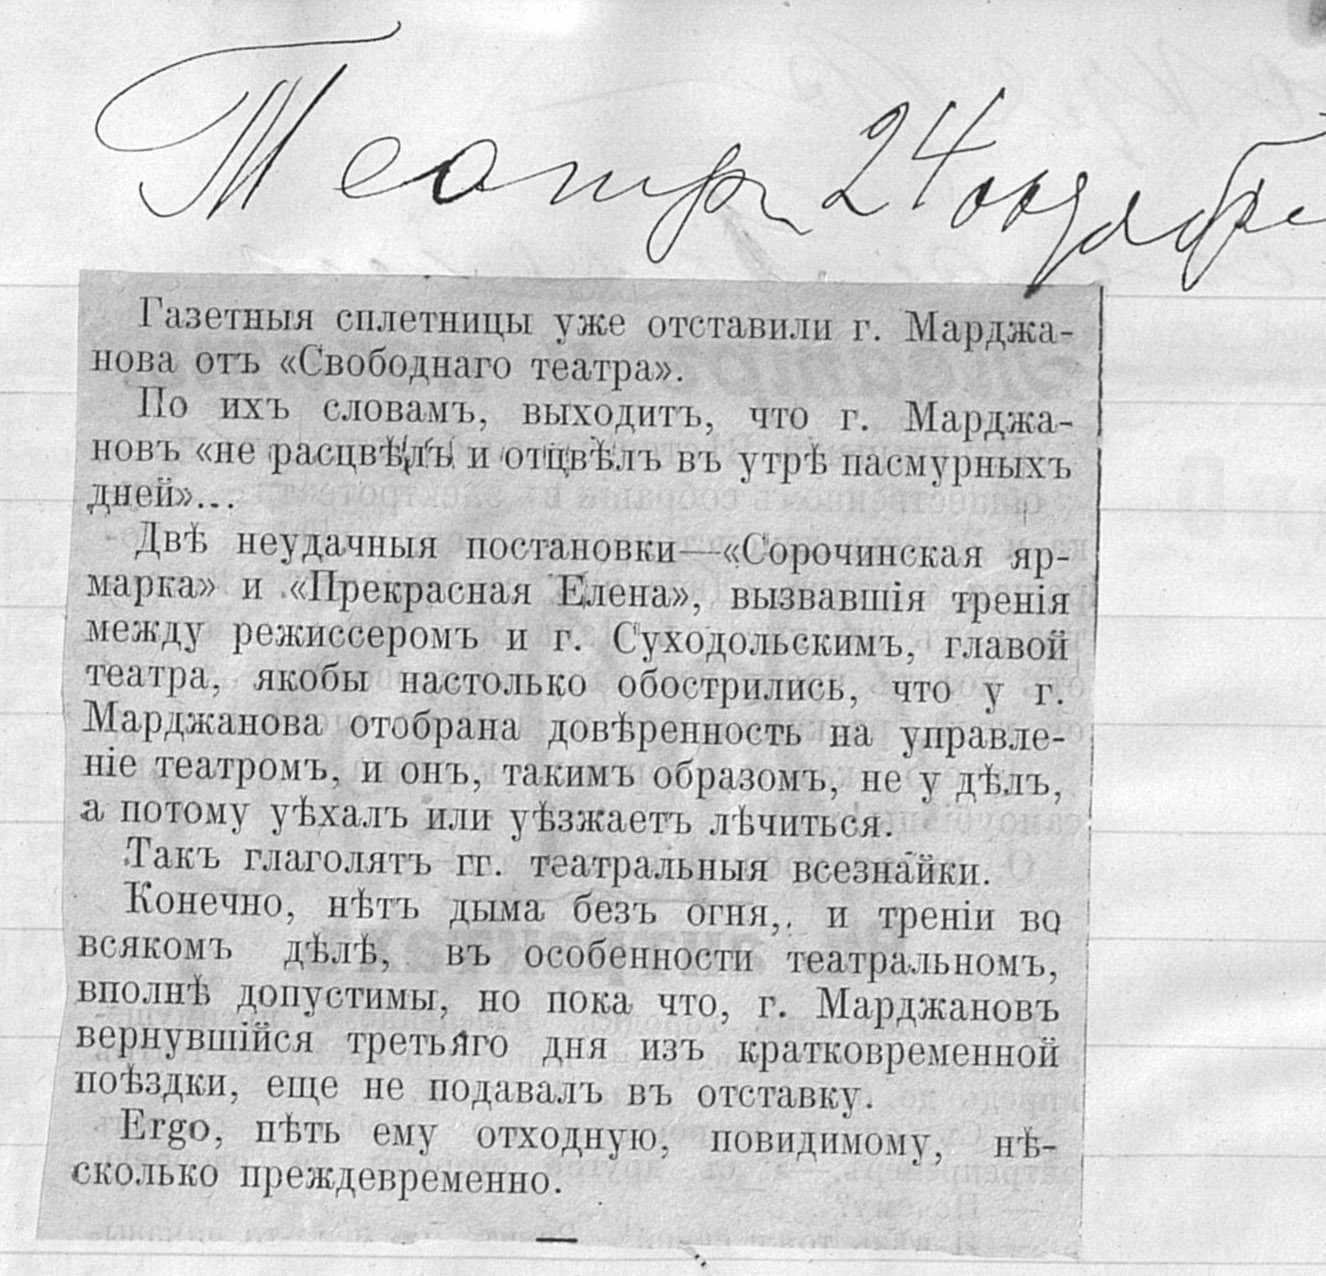 Театръ 24 ноябр
Газетныя сплетницы уже отставили г. Марджа-
нова отъ «Свободнаго театра».
По ихъ словамъ, выходитъ, что г. Марджа-
новъ «не расцвѣлъ и отцвѣлъ въ утрѣ пасмурныхъ
дней»...
Двѣ неудачныя постановки—«Сорочинская яр-
марка» и «Прекрасная Елена», вызвавшія тренія
между режиссеромъ и г. Суходольскимъ, главой
театра, якобы настолько обострились, что у г.
Марджанова отобрана довѣренность на управле-
ніе театромъ, и онъ, такимъ образомъ, не у дѣлъ,
а потому уѣхалъ или уѣзжаетъ лѣчиться.
Такъ глаголятъ гг. театральныя всезнайки.
Конечно, нѣтъ дыма безъ огня, и треніи во
всякомъ дѣлѣ, въ особенности театральномъ,
вполнѣ допустимы, но пока что, г. Марджановъ
вернувшійся третьяго дня изъ кратковременной
поѣздки, еще не подавалъ въ отставку.
Ergo, пѣть ему отходную, повидимому, нѣ-
сколько преждевременно.